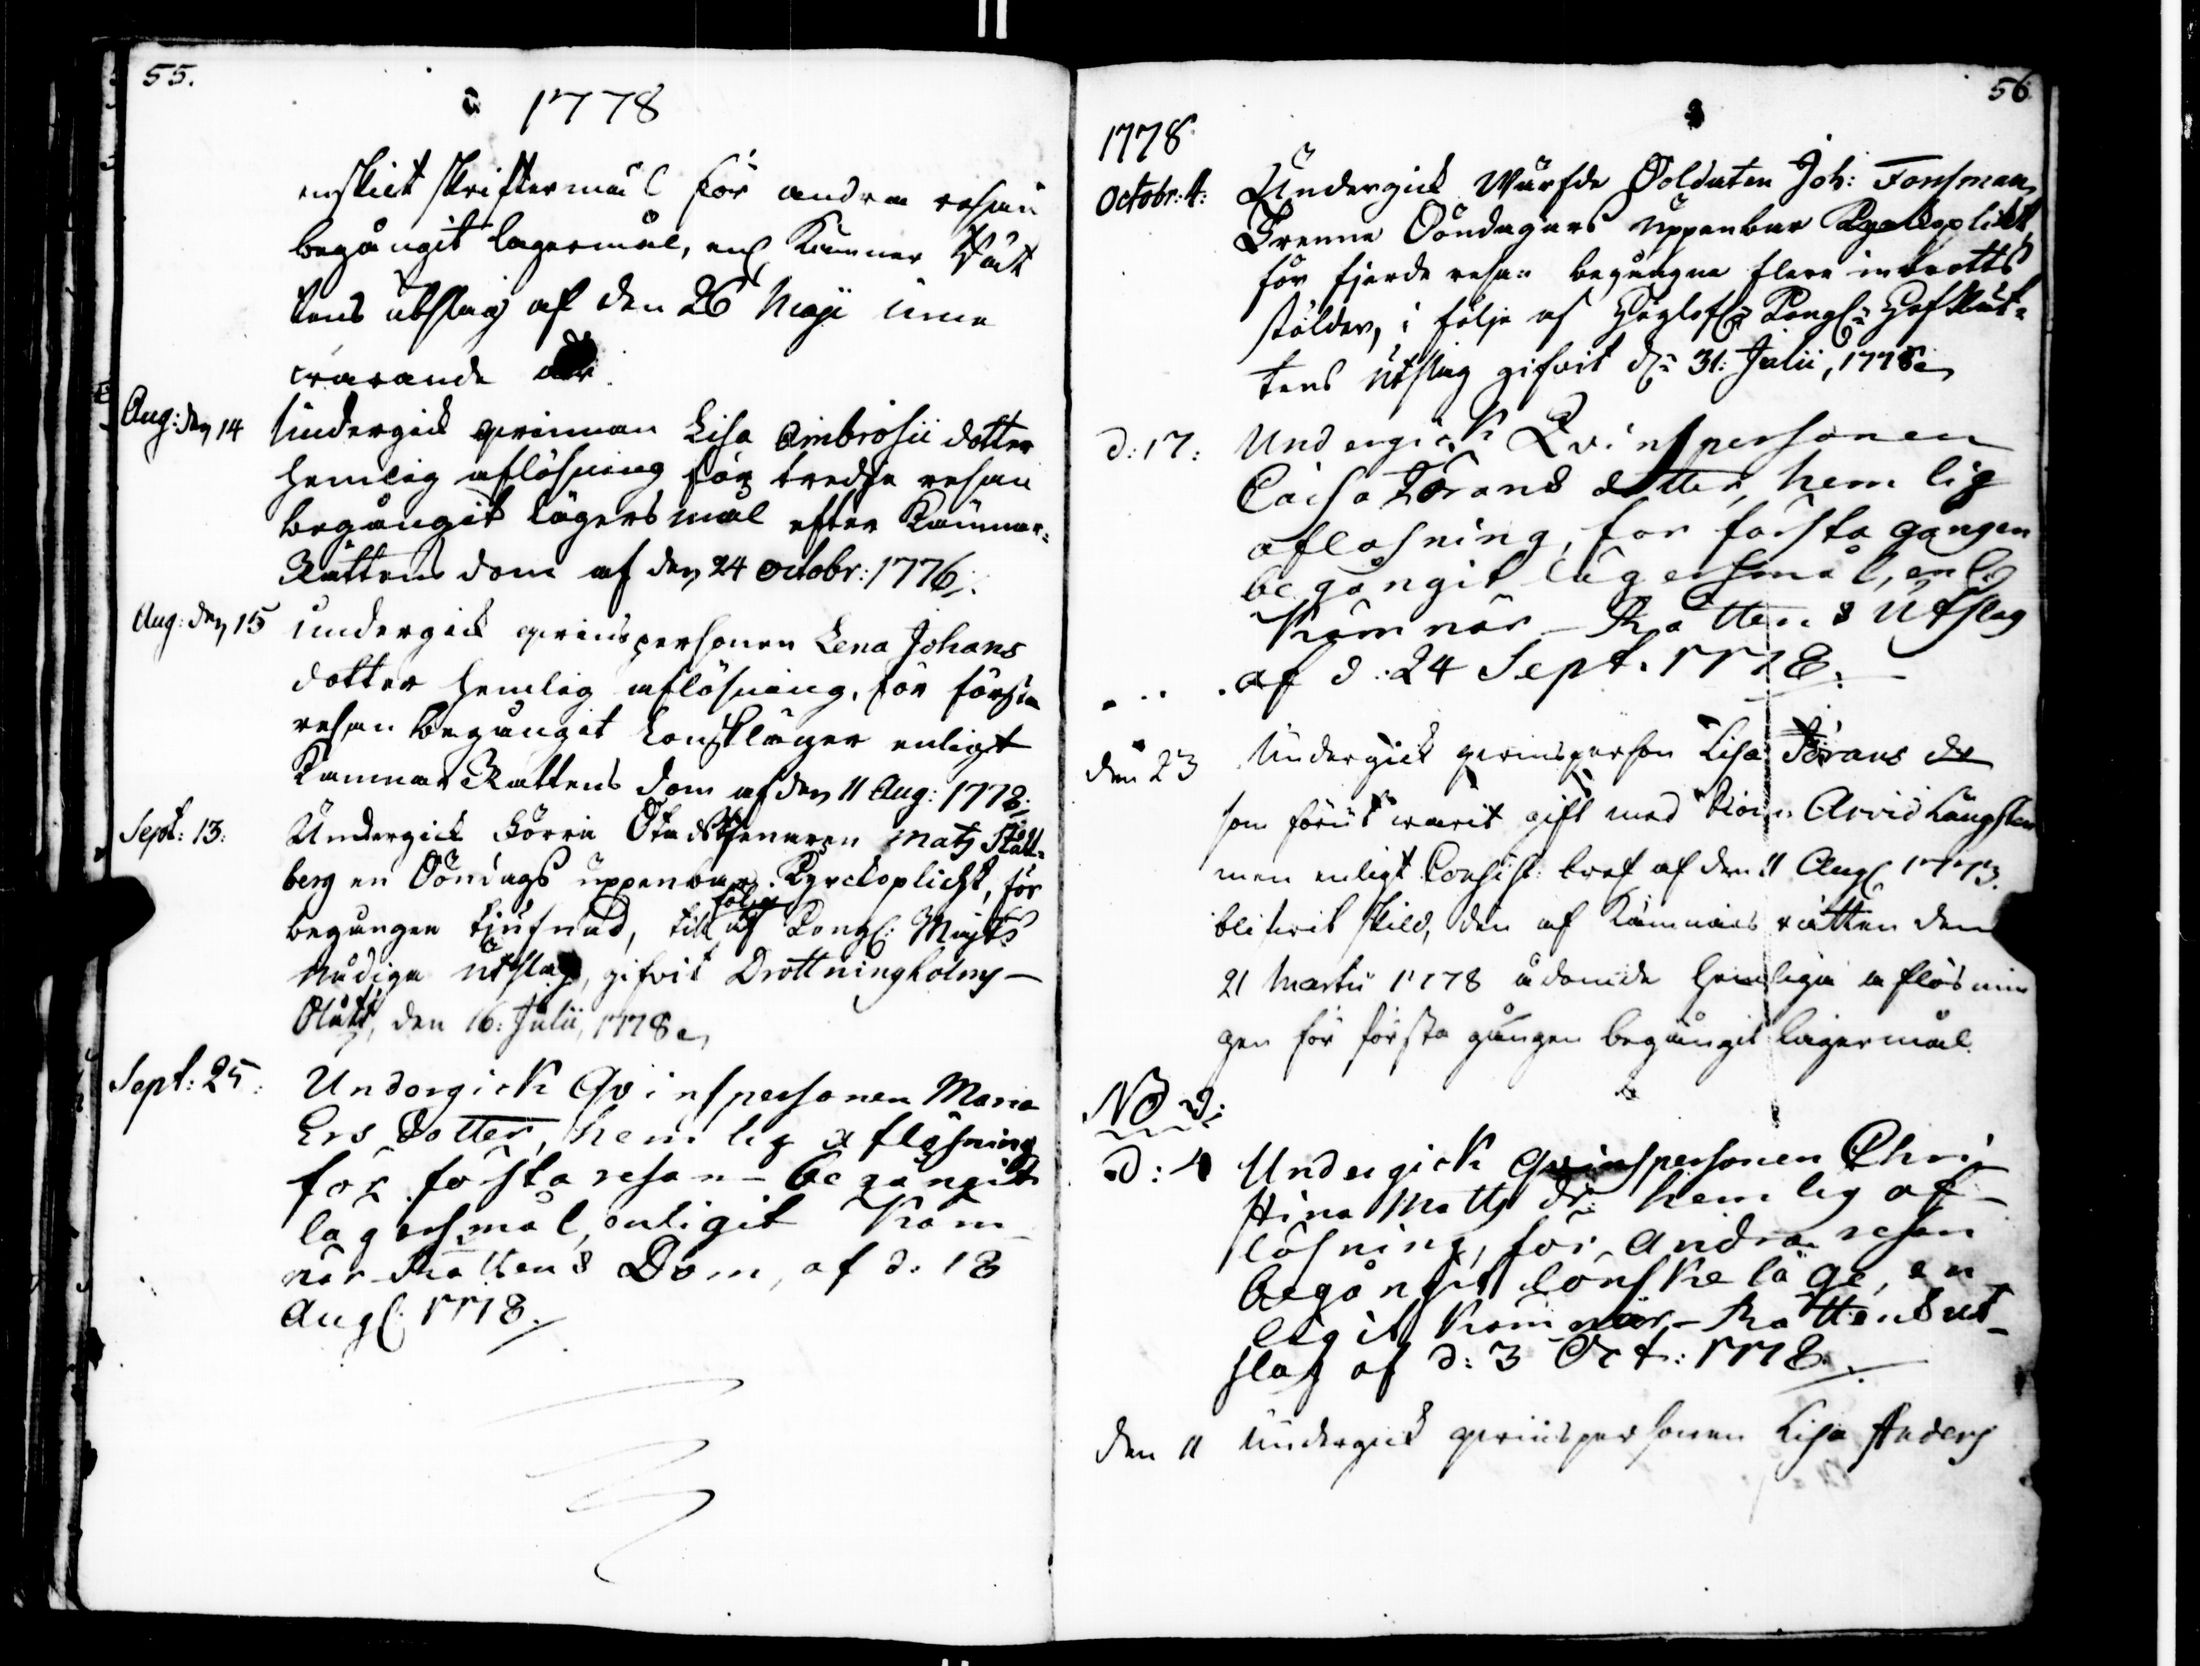 55.
1778
enskiet skriftermål för andra resan
begångit lägersmål, enl. Kämner Rät
tens utslag af den 26 Maji inne
warande år.
Aug: den 14 undergick qvinnan Lisa Ambrosii dotter
hemlig aflösning för tredje resan
begångit lägersmål efter Kämner-
Rättens dom af den 24 octobr: 1776.
Aug: den 15 undergick qvinspersonen Lena Johans
dotter hemlig aflösning, för första
resan begångit Lönskläger enligt
Kämnar Rättens dom af den 11 Aug: 1778.
Sept: 13: Undergick Förra Stadstjenaren Matz Ståhl-
berg en Söndags uppenbar Kyrckoplicht, för
följe
begången tiufnad, till af Kongl: Maj:ts
Nådiga Utslag, gifvit Drottningholms-
Slått, den 16: Julii, 1778
Sept: 25: Undergick Qvinspersonen Maria
Ers Dotter, hemlig aflösning
för första resan begångit
lägersmål, enligit Käm-
när-Rättens Dom, af d. 18
Augl: 1778.
56
1778
Octobr: 4: Undergick Wärfde Soldaten Joh: Forssman,
Trenne Söndagars uppenbar Kyrkoplikt,
för fjerde resan begångne flere inbrotts
stölder, i följe af Höglofl: Kongl: HofRät-
tens Utslag gifvit d: 31: Julii, 1778
d: 17: Undergick Qvinspersonen
Caisa Görans dotter, hemlig
aflösning, för första gången
begångit lägersmål, enl.
Kämnär-Rättens Utslag
af d: 24 Sept. 1778.
den 23 Undergick qvinsperson Lisa Görans dr
som förut warit gift med Arvid Långsten
men enligt Consist: bref af den 11 Aug 1773.
blifwit skild, den af Kämnärs rätten den
21 Martii 1778 ådömde hemliga aflösnin
gen för första gången begångit lägersmål.
d: 4 Undergick Qvinspersonen Chri-
stina Matts dr: hemlig af-
lösning, för andra resan
begångit lönskeläge, en-
ligit Kämnär-Rättens ut-
slag af d: 3 Oct: 1778.
den 11 undergick qvinspersonen Lisa Anders